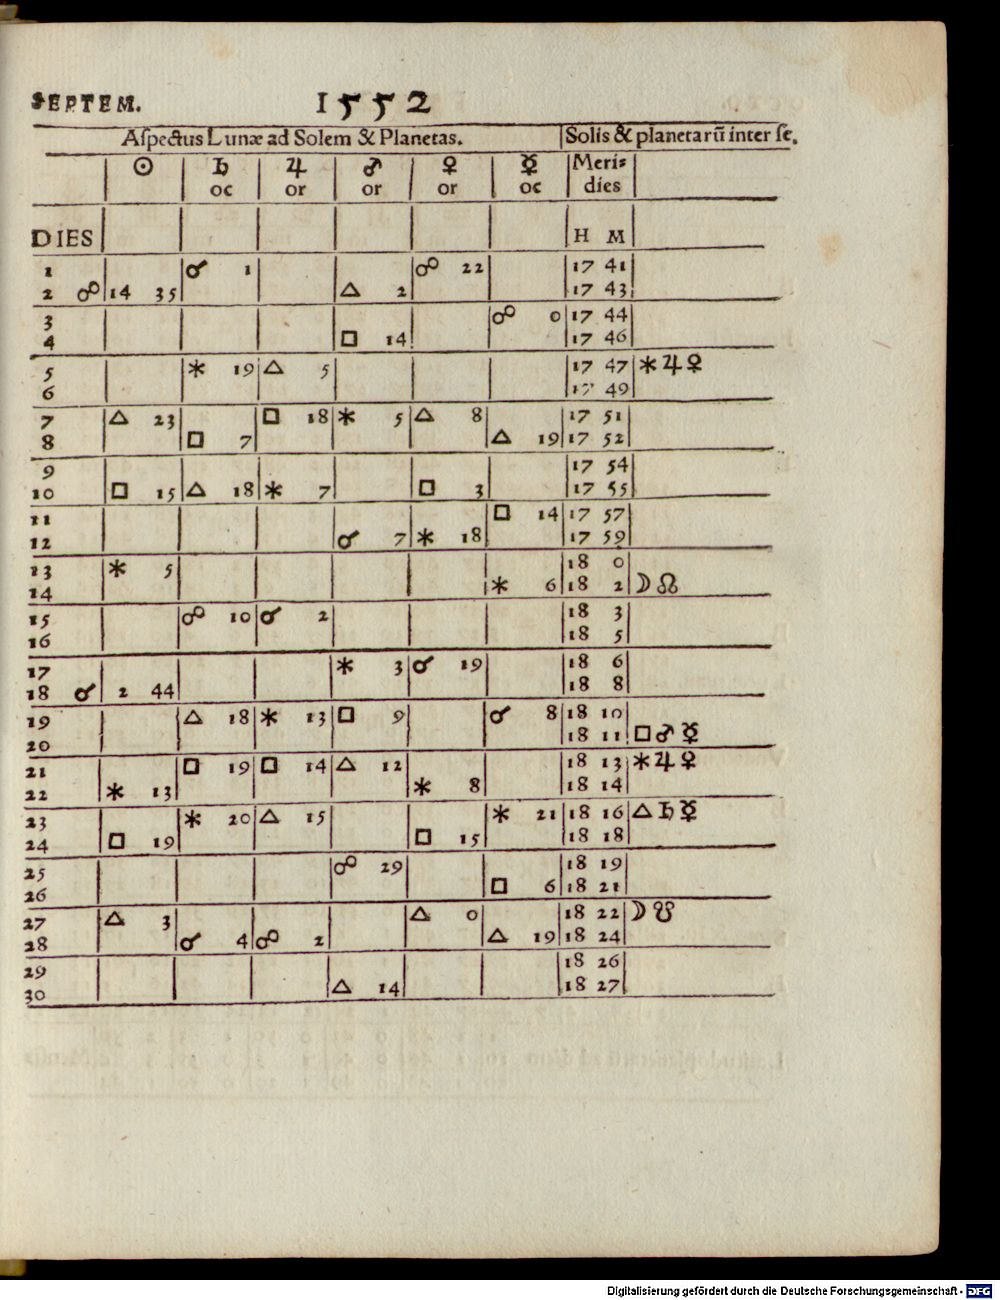 SEPTEM. 1552
Aſpectus Lunæ ad Solem & Planetas. Solis & planetarũ inter ſe.
☉ ♄ ♃ ♂ ♀ ☿ Meri⸗
oc or or or oc dies
DIES H M
1 ☌ 1 ☍ 22 17 41
2 ☍ 14 35 △ 2 17 43
3 ☍ 0 17 44
4 □ 14 17 46
5 ⚹ 19 △ 5 17 47 ⚹ ♃ ♀
6 17 49
7 △ 23 □ 18 ⚹ 5 △ 8 17 51
8 □ 7 △ 19 17 52
9 17 54
10 □ 15 △ 18 ⚹ 7 □ 3 17 55
11 □ 14 17 57
12 ☌ 7 ⚹ 18 17 59
13 ⚹ 5 18 0
14 ⚹ 6 18 2 ☽ ☊
15 ☍ 10 ☌ 2 18 3
16 18 5
17 ⚹ 3 ☌ 19 18 6
18 ☌ 2 44 18 8
19 △ 18 ⚹ 13 □ 9 ☌ 8 18 10
20 18 11 □ ♂ ☿
21 □ 19 □ 14 △ 12 18 13 ⚹ ♃ ♀
22 ⚹ 13 ⚹ 8 18 14
23 ⚹ 20 △ 15 ⚹ 21 18 16 △ ♄ ☿
24 □ 19 □ 15 18 18
25 ☍ 29 18 19
26 □ 6 18 21
27 △ 3 △ 0 18 22 ☽ ☋
28 ☌ 4 ☍ 2 △ 19 18 24
29 18 26
30 △ 14 18 27
Digitalisierung gefördert durch die Deutsche Forschungsgemeinschaft - DFG